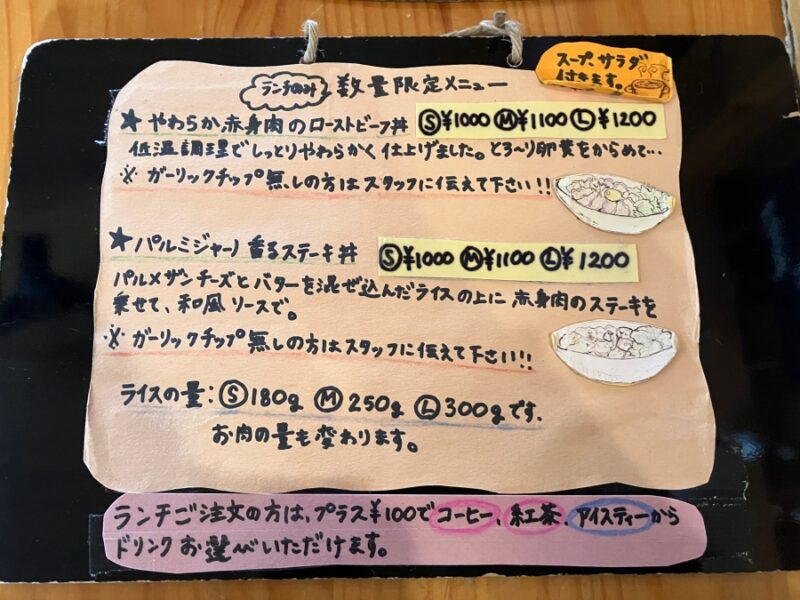 ランチのみ 数量限定メニュー
スープ、サラダ
付きます。
★ やわらか赤身肉のローストビーフ丼 Ⓢ¥1000 Ⓜ¥1100 Ⓛ¥1200
低温調理でしっとりやわらかく仕上げました。とろ〜り卵黄をからめて…
※ ガーリックチップ無しの方はスタッフに伝えて下さい!!
★ パルミジャーノ香るステーキ丼 Ⓢ¥1000 Ⓜ¥1100 Ⓛ¥1200
パルメザンチーズとバターを混ぜ込んだライスの上に赤身肉のステーキを
乗せて、和風ソースで。
※ ガーリックチップ無しの方はスタッフに伝えて下さい!!
ライスの量:Ⓢ180g Ⓜ250g Ⓛ300gです.
お肉の量も変わります。
ランチご注文の方は、プラス¥100でコーヒー、紅茶、アイスティーから
ドリンクお選べいただけます。